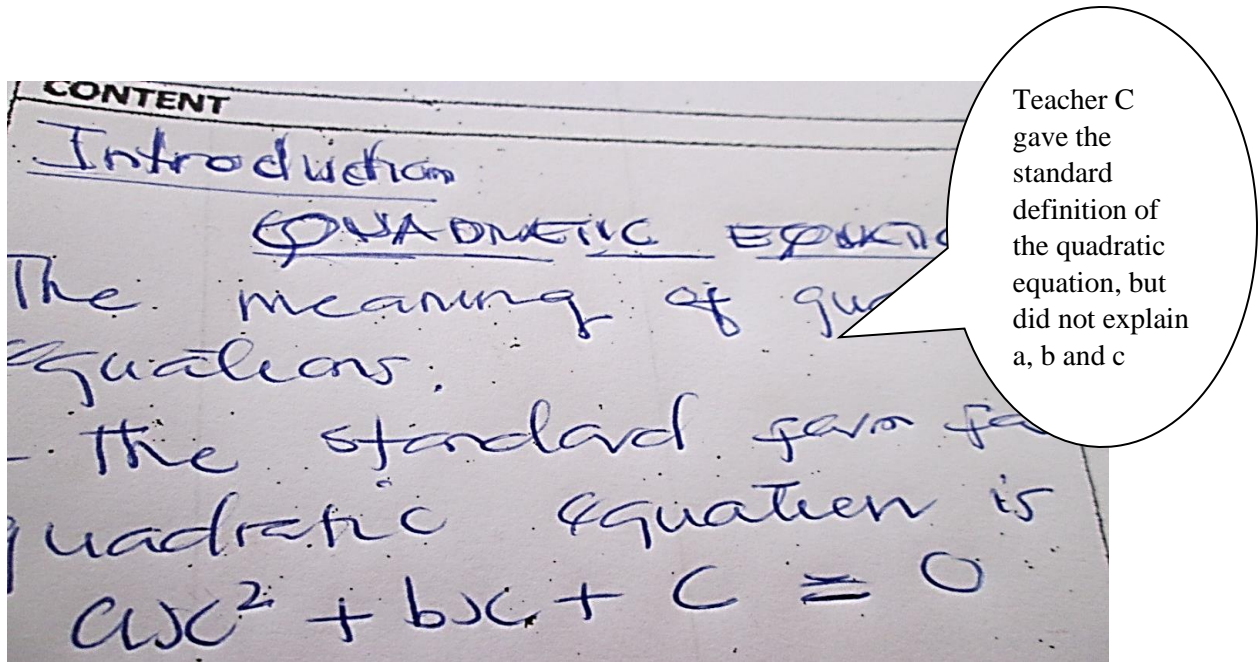 CONTENT
Introduction
QUADRATIC EQUATIO
The meaning of qua
equations.
- The standard form fo
quadratic equation is
ax² + bx + c = 0
Teacher C
gave the
standard
definition of
the quadratic
equation, but
did not explain
a, b and c